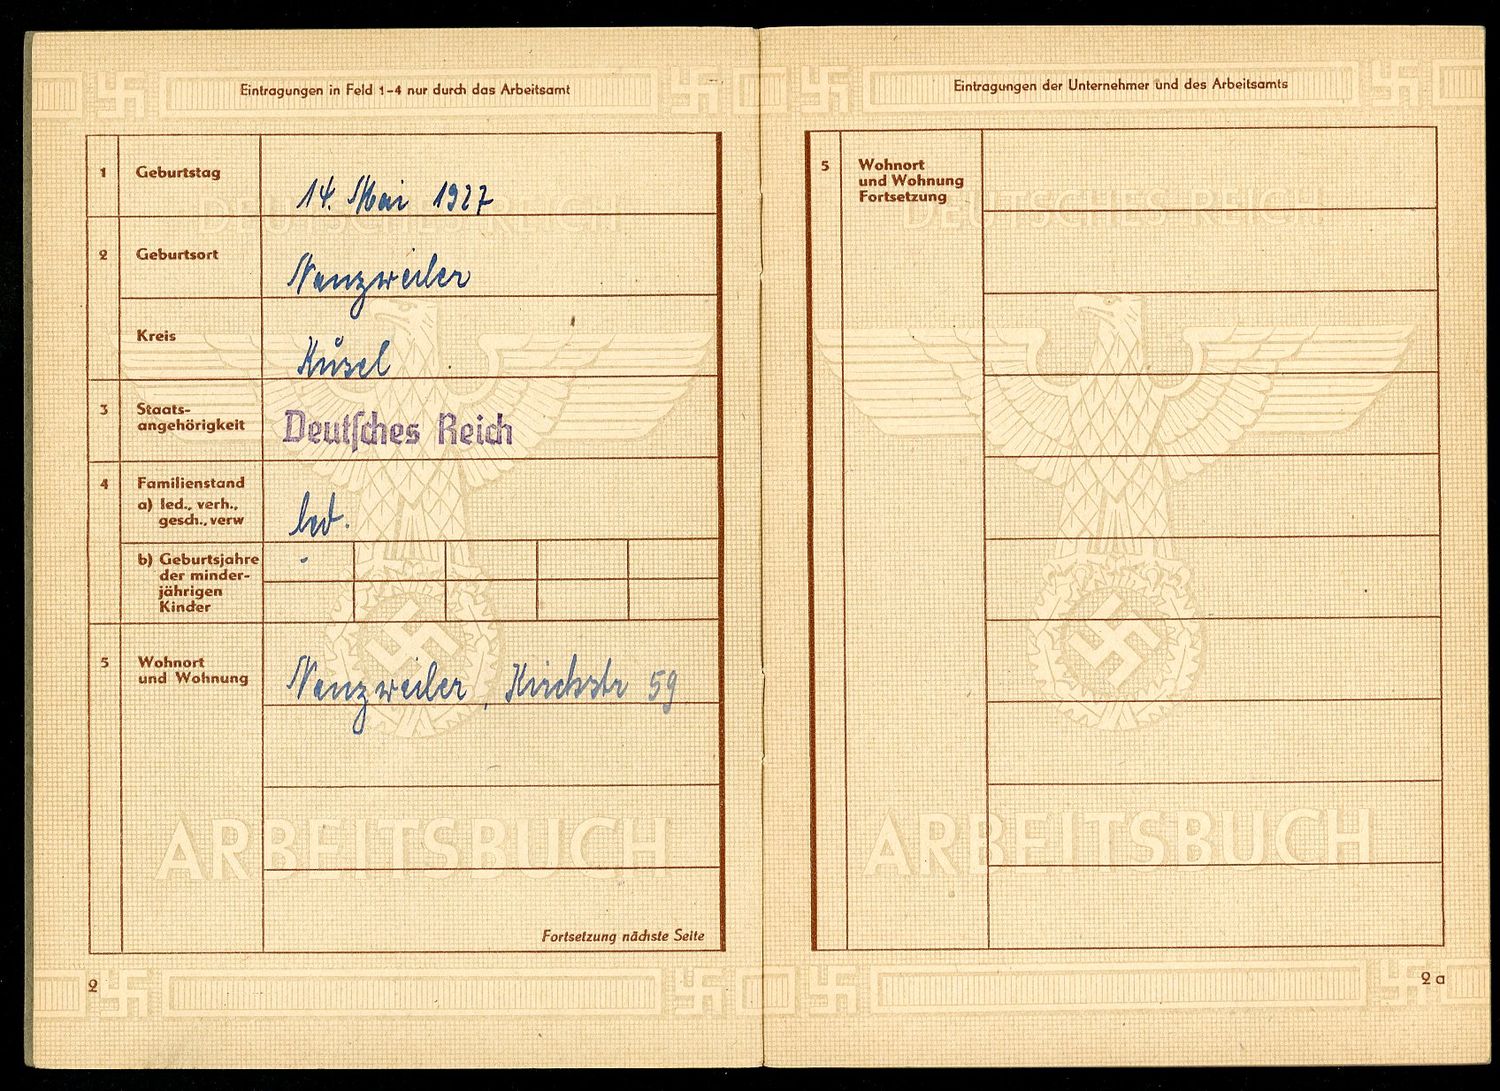 Eintragungen in Feld 1-4 nur durch das Arbeitsamt
1 Geburtstag 14. Mai 1927
2 Geburtsort Nanzweiler
Kreis Kusel
3 Staats-
angehörigkeit Deutsches Reich
4 Familienstand
a) led., verh.,
gesch., verw led.
b) Geburtsjahre
der minder-
jährigen
Kinder
5 Wohnort
und Wohnung Nanzweiler, Kirchstr 59
Fortsetzung nächste Seite
2
DEUTSCHES REICH
ARBEITSBUCH
Eintragungen der Unternehmer und des Arbeitsamts
5 Wohnort
und Wohnung
Fortsetzung
2 a
DEUTSCHES REICH
ARBEITSBUCH